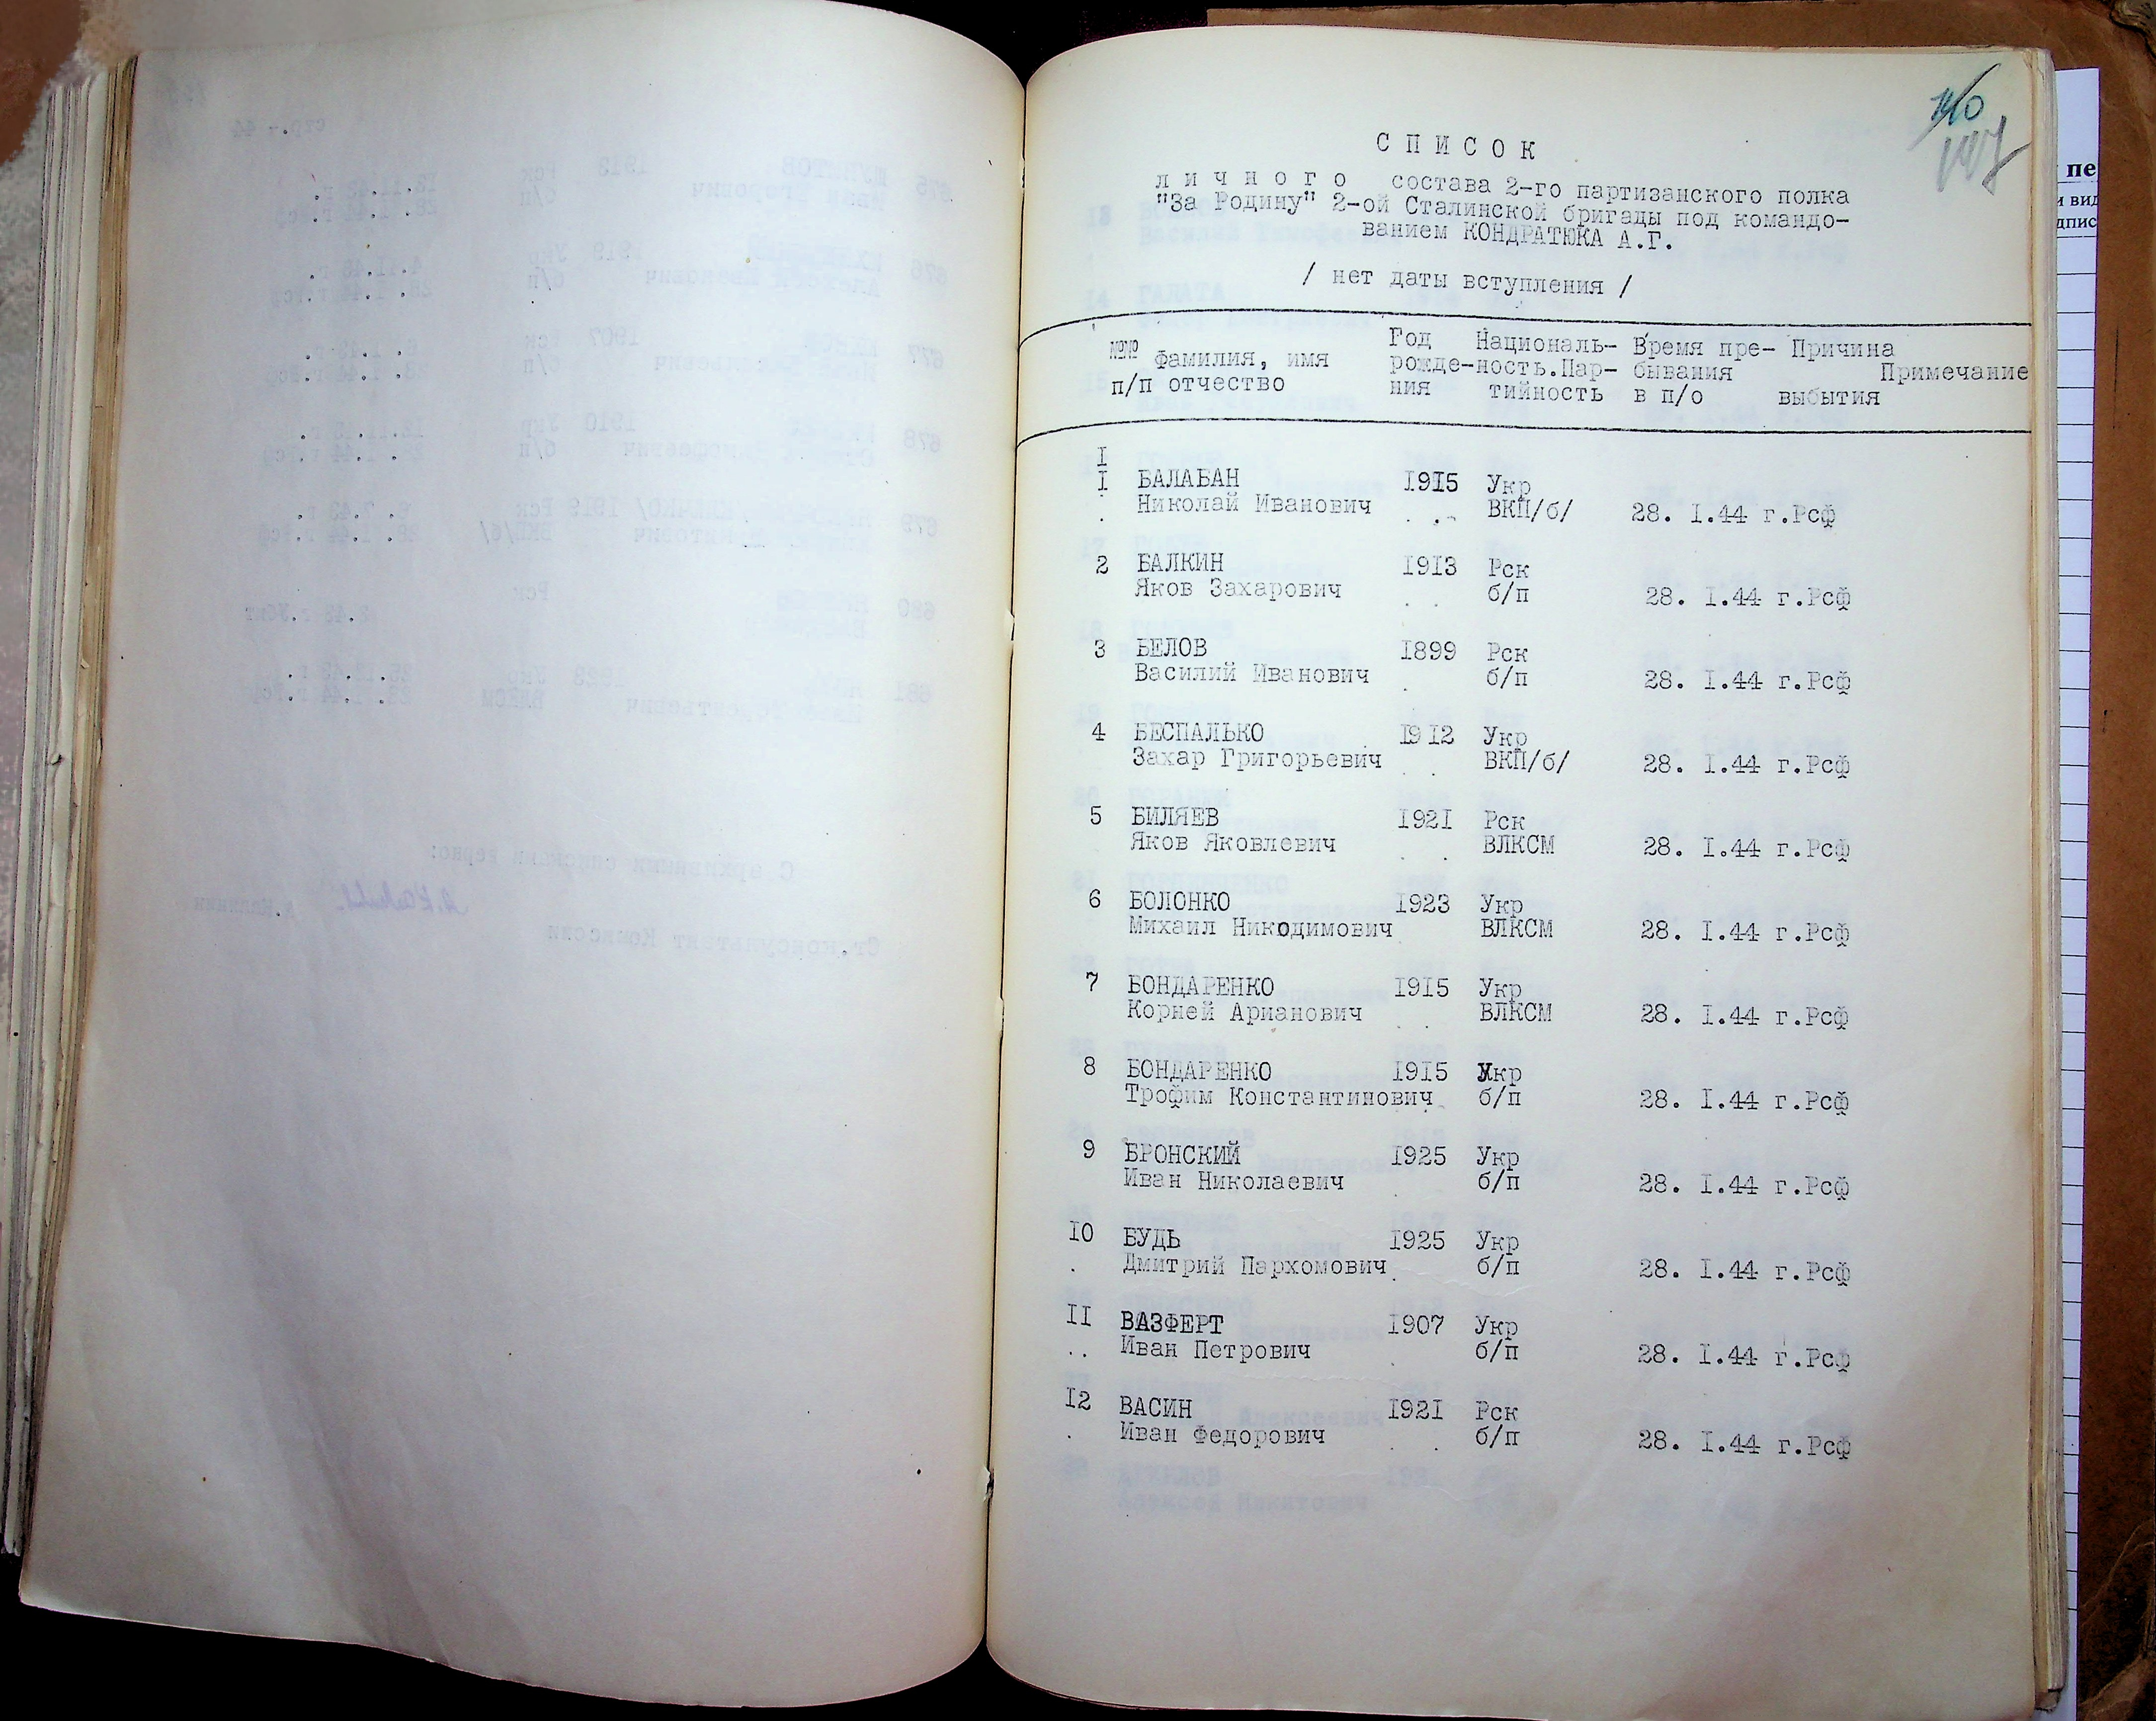 С П И С О К
л и ч н о г о состава 2-го партизанского полка
"За Родину" 2-ой Сталинской бригады под командо-
ванием КОНДРАТЮКА А.Г.
/ нет даты вступления /
№№ Фамилия, имя Год Националь- Время пре- Причина
п/п отчество рожде- ность.Пар- бывания Примечание
ния тийность в п/о выбытия
I
I БАЛАБАН 1915 Укр
Николай Иванович ВКП/б/ 28. I.44 г.Рсф
2 БАЛКИН 1913 Рск
Яков Захарович б/п 28. I.44 г.Рсф
3 БЕЛОВ 1899 Рск
Василий Иванович б/п 28. I.44 г.Рсф
4 БЕСПАЛЬКО 1912 Укр
Захар Григорьевич ВКП/б/ 28. I.44 г.Рсф
5 БИЛЯЕВ 1921 Рск
Яков Яковлевич ВЛКСМ 28. I.44 г.Рсф
6 БОЛОНКО 1923 Укр
Михаил Никодимович ВЛКСМ 28. I.44 г.Рсф
7 БОНДАРЕНКО 1915 Укр
Корней Арианович ВЛКСМ 28. I.44 г.Рсф
8 БОНДАРЕНКО 1915 Укр
Трофим Константинович б/п 28. I.44 г.Рсф
9 БРОНСКИЙ 1925 Укр
Иван Николаевич б/п 28. I.44 г.Рсф
10 БУДЬ 1925 Укр
Дмитрий Пархомович б/п 28. I.44 г.Рсф
II ВАЗФЕРТ 1907 Укр
Иван Петрович б/п 28. I.44 г.Рсф
12 ВАСИН 1921 Рск
Иван Федорович б/п 28. I.44 г.Рсф